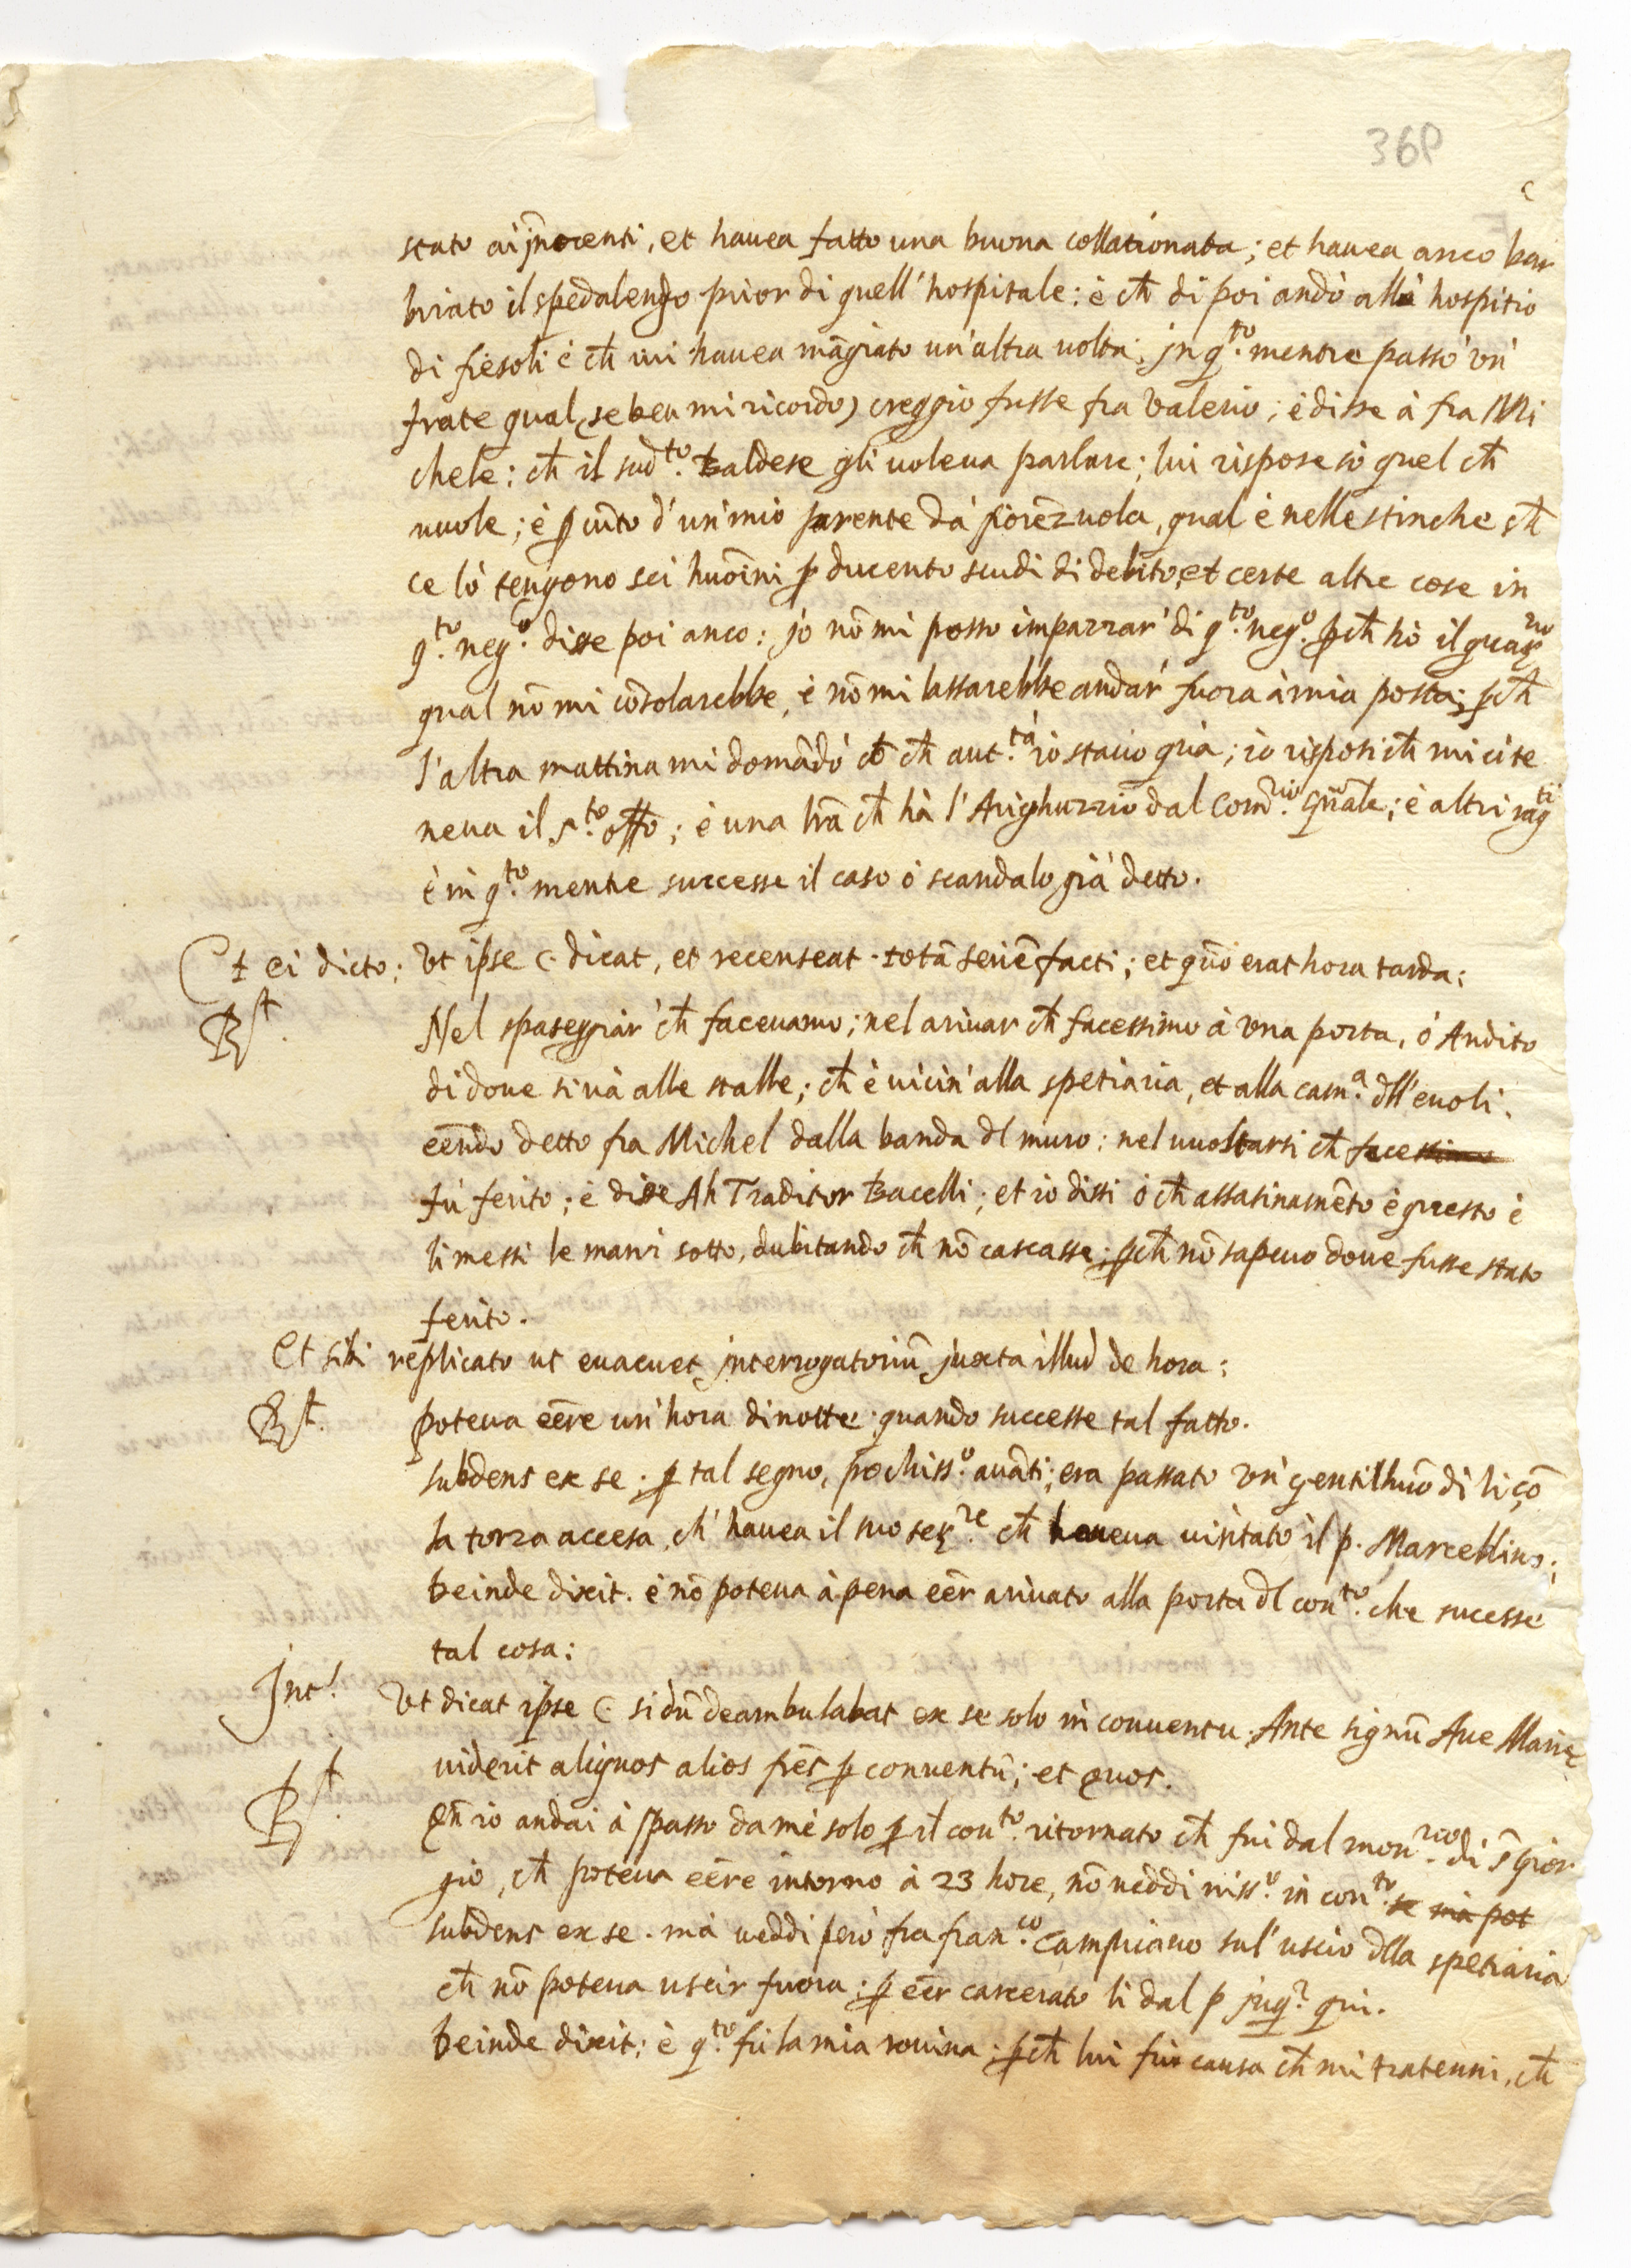 369
c
stato ai jñocenti, et hauea fatto una buona collationata; et hauea anco bar
briato il spedalengo prior di quell'hospitale: è ch̃ di poi andò allo hospitio
di fiesoli è ch̃ iui hauea mãgiato un'altra uolta; jn q.to mentre passò vn'
frate qual (se ben mi ricordo) creggio fusse fra Valerio; è disse à fra Mi
chele: ch̃ il sud.to Baldese gli uoleua parlare; lui rispose sò quel ch̃
uuole; è p cũto d'un'mio parente da fiorẽzuola, qual è nelle stinche ch̃
ce lò tengono sei huõini p ducento scudi di debito, et certe altre cose in
q.to neg.o disse poi anco: jo nõ mi posso impazzar' di q.to neg.o pch̃ hò il guar.no
qual nõ mi cõsolarebbe, è nõ mi lassarebbe andar' fuora à mia posta; pch̃
l'altra mattina mi domãdò cõ ch̃ aut.tà io stauo quà; io risposi ch̃ mi ci te
neua il s.to offo; è una lrã ch̃ hà l'Arighuzzio dal Com.rio gñale; è altri rag.ti
è in q.to mentre successe il caso ò scandalo già detto.
Et ei dicto: Vt ipse C. dicat, et recenseat totã seriẽ facti; et quõ erat hora tarda:
R.t Nel spaseggiar' ch̃ faceuamo; nel ariuar ch̃ facessimo à vna porta, ò Andito
di doue si uà alle stalle; ch̃ è uicin'alla spetiaria, et alla cam.a dll'euoli.
eẽndo detto fra Michel dalla banda dl muro: nel uuoltarsi ch̃ facessimo
fù ferito; è disse Ah Traditor Bacelli; et io dissi ò ch̃ assasinamẽto è questo è
li messi le mani sotto, dubitando ch̃ nõ cascasse; pch̃ nõ sapeuo doue fusse stato
ferito.
Et sibi replicato ut euacuet jnterrogatoriũ juxta illud de hora:
R.t poteua eẽre un'hora di notte quando successe tal fatto.
subdens ex se. p tal segno, pochiss.o auãti; era passato vn' gentilhuõ di li cõ
la torza accesa, ch' hauea il suo ser.re ch̃ haueua uisitato il p. Marcellino;
deinde dixit. è nõ poteua à pena eẽr ariuato alla porta dl con.to che sucesse
tal cosa:
Jnt. Vt dicat ipse C. si dũ deambulabat ex se solo in conuentu Ante signũ Aue Marie
uiderit aliquos alios frẽs p conuentũ; et quos.
R.t Qñ io andai à spasso da me solo p il con.to ritornato ch̃ fui dal mon.rio di s̃ Gior
gio, ch̃ poteua eẽre intorno à 23 hore, nõ ueddi niss.o in con.to se mà pot
subdens ex se. mà ueddi però fra fran.co Campriano sul'uscio dlla spetiaria
ch̃ nõ poteua uscir fuora: p eẽr carcerato li dal p jnq.r qui.
deinde dixit; è q.to fù la mia rouina pch̃ lui fù causa ch̃ mi tratenni, ch̃